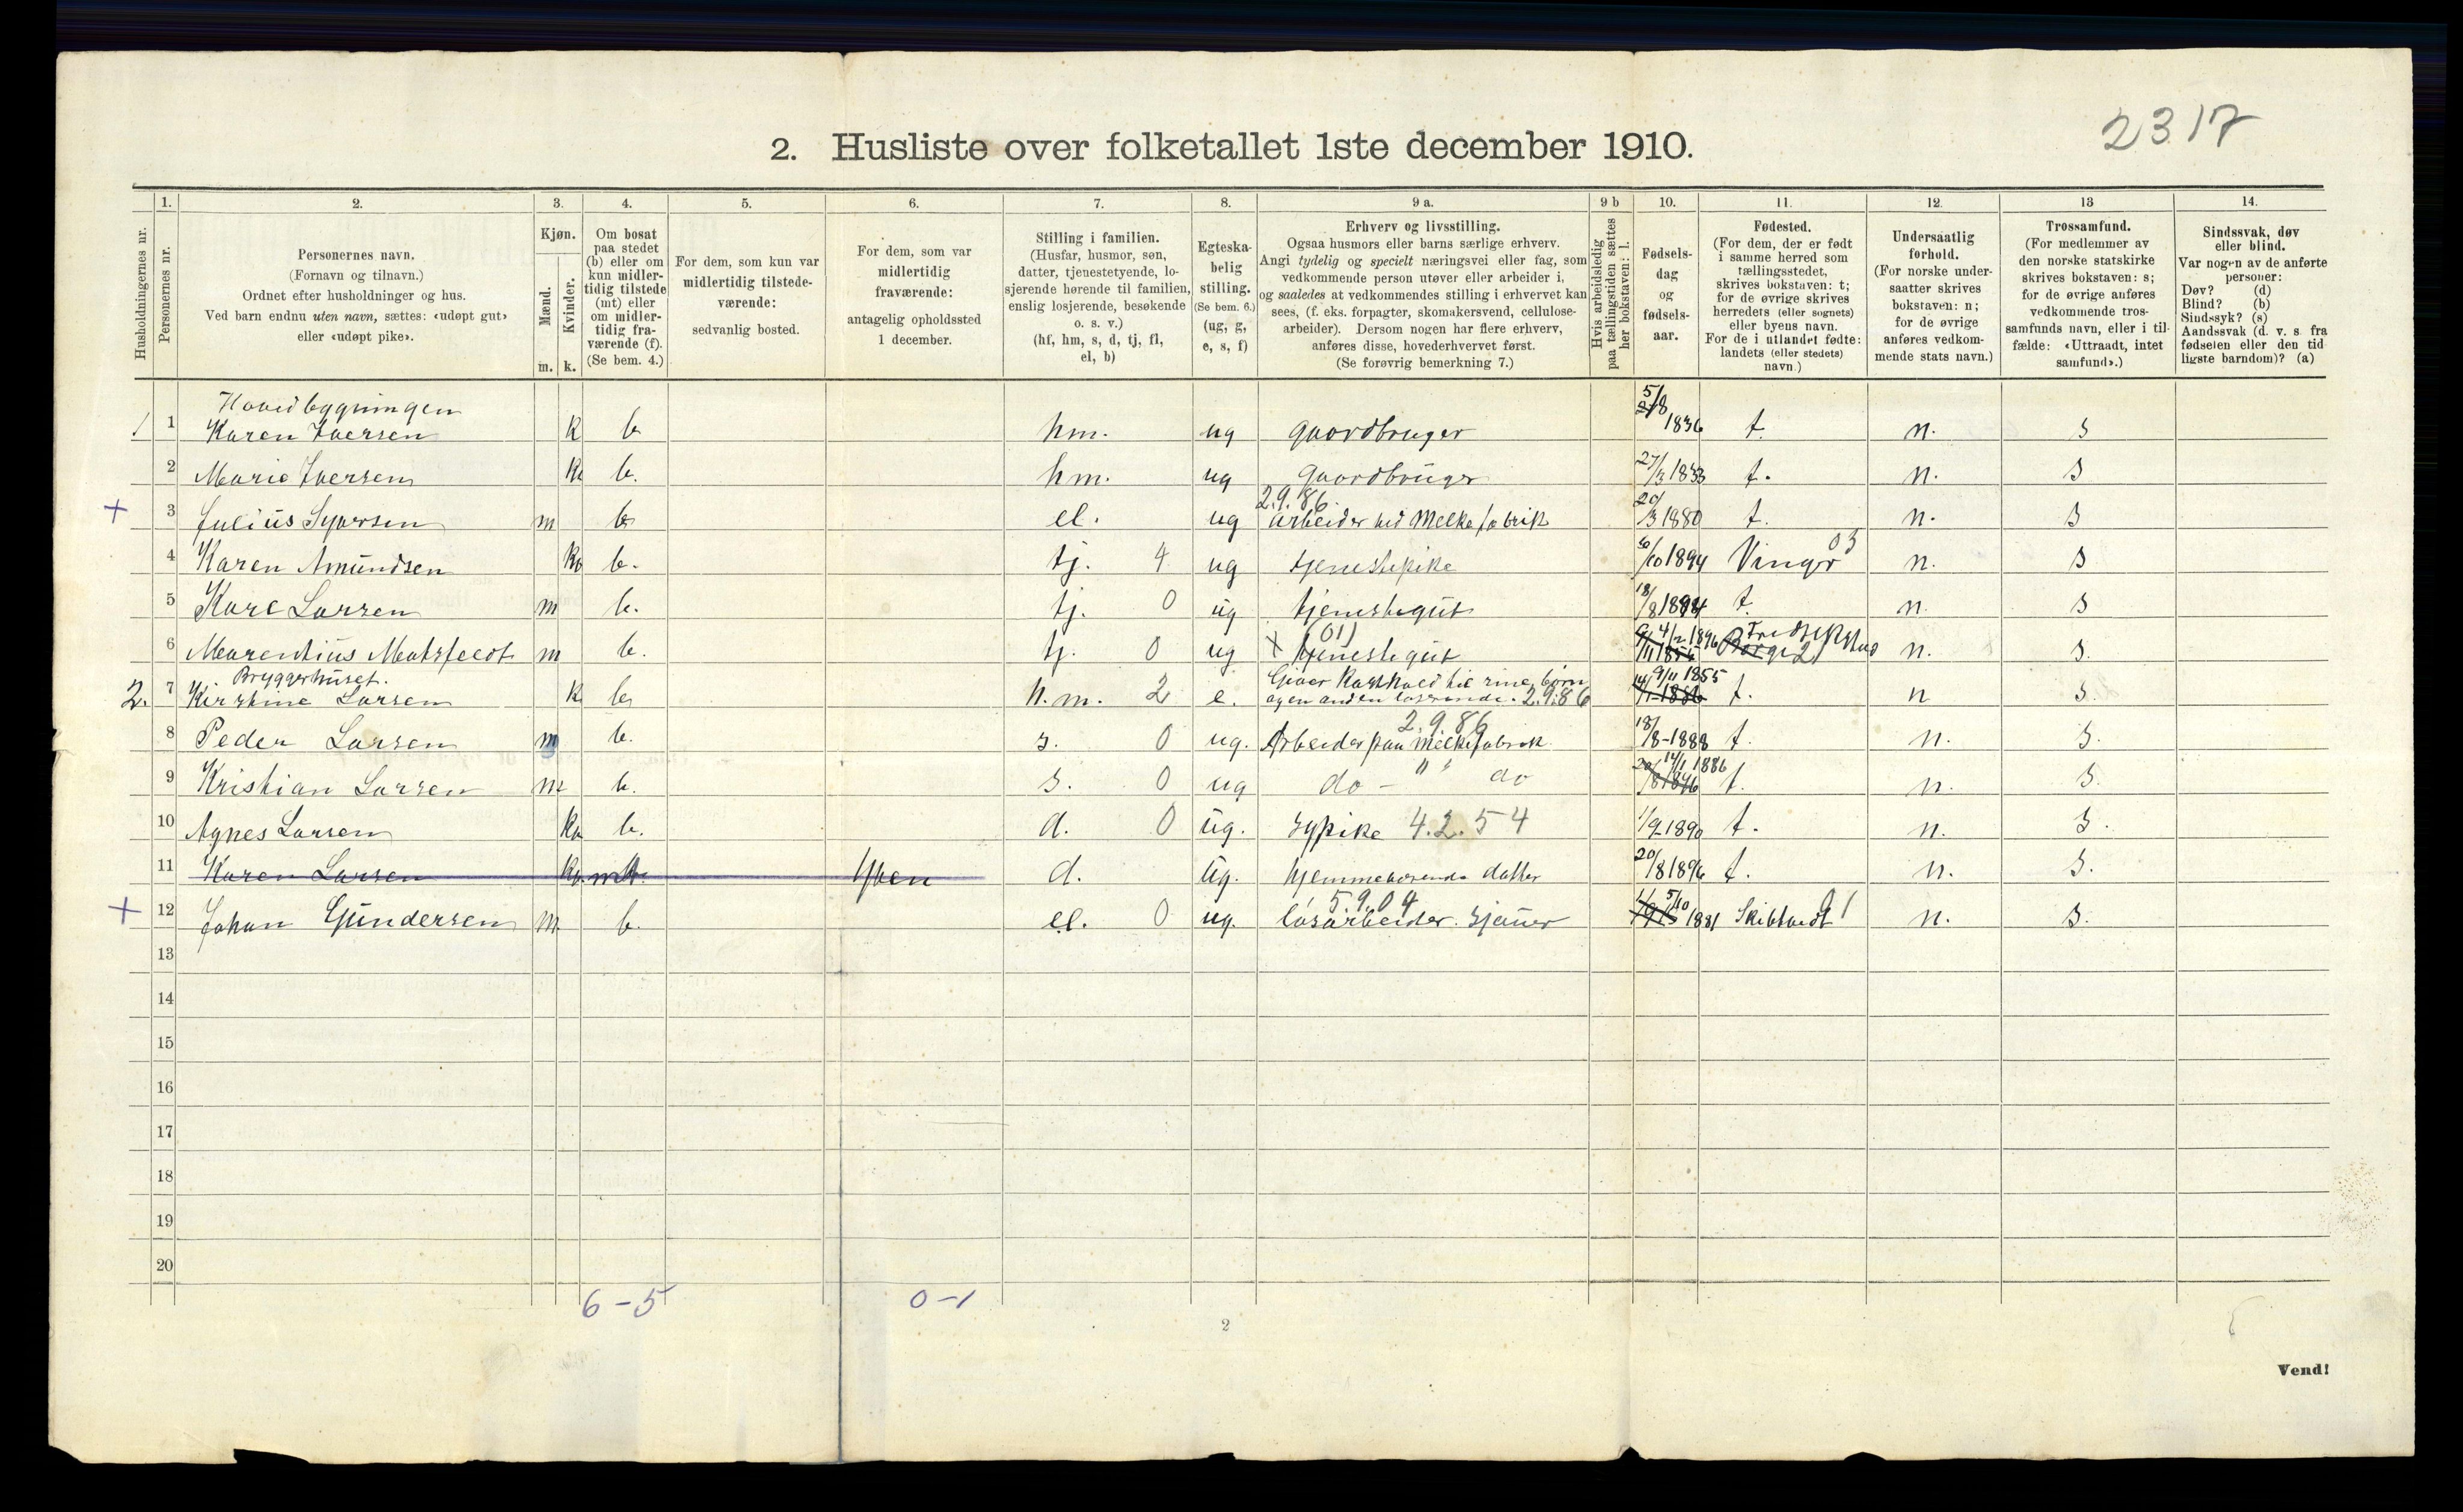 2317
2. Husliste over folketallet 1ste december 1910.
Husholdningernes nr.
1.
Personernes nr.
2.
Personernes navn.
(Fornavn og tilnavn.)
Ordnet efter husholdninger og hus.
Ved barn endnu uten navn, sættes: «udøpt gut»
eller «udøpt pike».
3.
Kjøn.
Mænd.
Kvinder.
m. k.
4.
Om bosat
paa stedet
(b) eller om
kun midler-
tidig tilstede
(mt) eller
om midler-
tidig fra-
værende (f).
(Se bem. 4.)
5.
For dem, som kun var
midlertidig tilstede-
værende:
sedvanlig bosted.
6.
For dem, som var
midlertidig
fraværende:
antagelig opholdssted
1 december.
7.
Stilling i familien.
(Husfar, husmor, søn,
datter, tjenestetyende, lo-
sjerende hørende til familien,
enslig losjerende, besøkende
o. s. v.)
(hf, hm, s, d, tj, fl,
el, b)
8.
Egteska-
belig
stilling.
(Se bem. 6.)
(ug, g,
e, s, f)
9 a.
Erhverv og livsstilling.
Ogsaa husmors eller barns særlige erhverv.
Angi tydelig og specielt næringsvei eller fag, som
vedkommende person utøver eller arbeider i,
og saaledes at vedkommendes stilling i erhvervet kan
sees, (f. eks. forpagter, skomakersvend, cellulose-
arbeider). Dersom nogen har flere erhverv,
anføres disse, hovederhvervet først.
(Se forøvrig bemerkning 7.)
9 b
Hvis arbeidsledig
paa tællingstiden sættes
her bokstaven: l.
10.
Fødsels-
dag
og
fødsels-
aar.
11.
Fødested.
(For dem, der er født
i samme herred som
tællingsstedet,
skrives bokstaven: t;
for de øvrige skrives
herredets (eller sognets)
eller byens navn.
For de i utlandet fødte:
landets (eller stedets)
navn.)
12.
Undersaatlig
forhold.
(For norske under-
saatter skrives
bokstaven: n;
for de øvrige
anføres vedkom-
mende stats navn.)
13
Trossamfund.
(For medlemmer av
den norske statskirke
skrives bokstaven: s;
for de øvrige anføres
vedkommende tros-
samfunds navn, eller i til-
fælde: «Uttraadt, intet
samfund».)
14.
Sindssvak, døv
eller blind.
Var nogen av de anførte
personer:
Døv? (d)
Blind? (b)
Sindssyk? (s)
Aandssvak (d. v. s. fra
fødselen eller den tid-
ligste barndom)? (a)
Hovedbygningen
1 1 Karen Iversen k b hm. ug gaardbruger 5/8 1836 t. n. s
2 Marie Iversen k b. hm. ug gaardbruger 27/3 1833 t. n. s
2.9.86
+ 3 Julius Syversen m b el. ug arbeider ved Melkefabrik 20/3 1880 t. n. s
4 Karen Amundsen k b. tj. 4 ug tjenestepike /10 1894 Vinger 03 n. s
5 Karl Larsen m b. tj. 0 ug tjenestegut 18/8 1894 t. n. s
(01)
6 Marentius m b. tj. 0 ug x tjenestegut 4/2 1896 Fredrikstad n. s.
Bryggerhuset.
2. 7 Kirstine Larsen k b h.m. 2 e. Giver Kosthold til sine børn
og en anden losjerende. 2.9.86 9/11 1855 t. n s.
2.9.86
8 Peder Larsen m b. s. 0 ug. Arbeider paa melkefabrik 18/8-1888 t. n. s.
9 Kristian Larsen m b. s. 0 ug do - " do 14/1 1886 t. n. s.
10 Agnes Larsen k b. d. 0 ug. sypike 4.2.54 1/9 1890 t. n. s.
11 Karen Larsen k. mt Yven d. ug. hjemmeværende datter 20/8 1896 t. n. s.
5.9.04
+ 12 Johan Gundersen m. b. el. 0 ug. løsarbeider. sjauer 5/10 1881 Skibtvedt 01 n. s.
13
14
15
16
17
18
19
20
6-5 0-1
2
Vend!